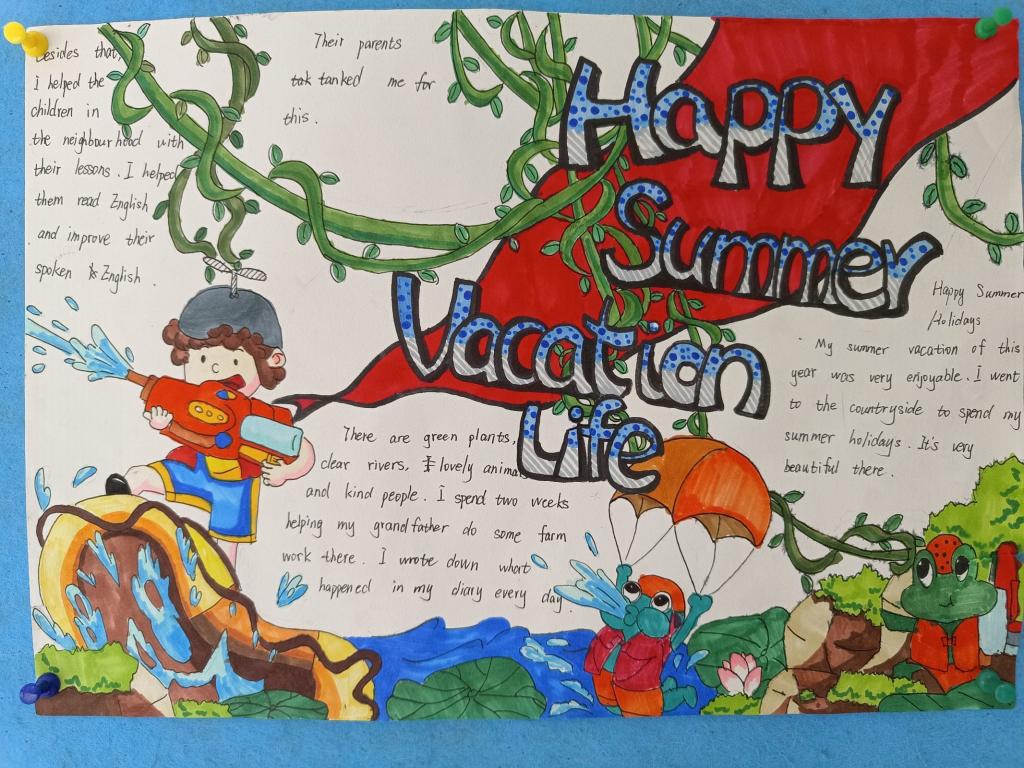 Happy
Summer
Vacation
Life
Happy Summer
Holidays
My summer vacation of this
year was very enjoyable. I went
to the countryside to spend my
summer holidays. It's very
beautiful there.
There are green plants,
clear rivers, lovely animal
and kind people. I spend two weeks
helping my grandfather do some farm
work there. I wrote down what
happened in my diary every day.
Besides that,
I helped the
children in
the neighbourhood with
their lessons. I helped
them read English
and improve their
spoken English.
Their parents
tak tanked me for
this.